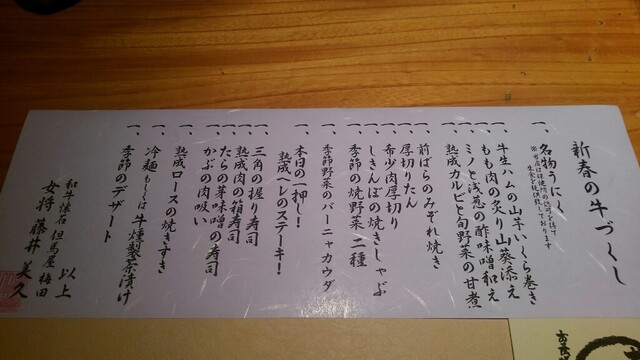 新春の牛づくし
一、名物うにく
一、牛生ハムの山芋いくら巻き
一、もも肉の炙り山葵添え
一、ミノと浅葱の酢味噌和え
一、熟成カルビと旬野菜の甘煮
一、前ばらのみぞれ焼き
一、厚切りたん
一、希少肉厚切り
一、しきんぼの焼きしゃぶ
一、季節の焼野菜 二種
一、季節野菜のバーニャカウダ
一、本日の一押し!
熟成ヘレのステーキ!
一、三角の握り寿司
一、熟成肉の箱寿司
一、たらの芽味噌の寿司
一、かぶの肉吸い
一、熟成ロースの焼きすき
一、冷麺もしくは牛燻製茶漬け
一、季節のデザート
以上
和牛懐石 但馬屋 梅田
女将 藤井 美久